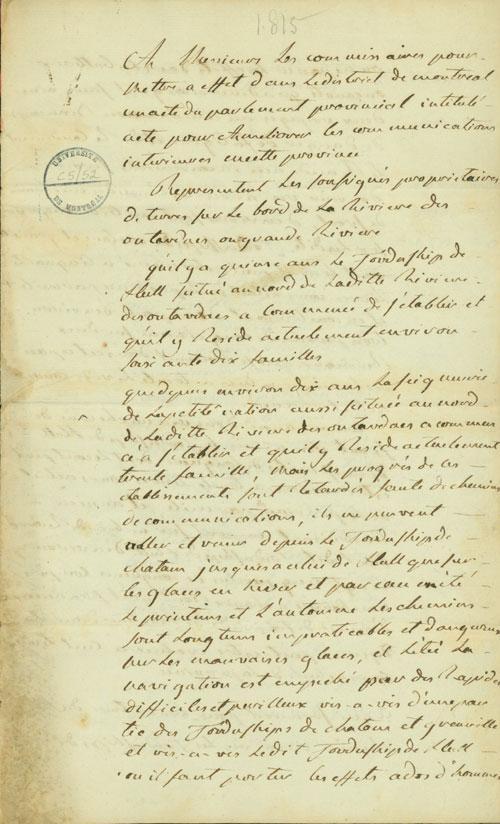 1815
A Messieurs Les commissaires pour
mettre a effet dans Ledistrict de montreal
un acte du parlement provincial intitulé
acte pour Ameliorer les communications
interieures en cette province
Representent Les soussignés proprietaires
de terres sur Le bord de La Riviere des
outardaes ou grande Riviere
quil y a quinse ans Le Townships de
Hull situé au nord de Laditte Riviere
des outardaes a commencé de s'etablir et
quil y Reside actuelement environ
soixante dix familles
que depuis environ dix ans La seigneurie
de La petite nation aussi située au nord
de Laditte Riviere des outardaes a commen
cé a s'etablir et quil y Reside actuelement
trente famille, Mais Les progrès de ces
etablissements sont Retardés faute de chemins
de communications, ils ne peuvent
aller et venir depuis Le Townships de
chatam jusques a celui de Hull que sur
les glaces en hiver et par eau en été
Le printems et L'automne Les chemins
sont Longtems impraticables et dangereux
sur Les mauvaises glaces, et L'été La
navigation est empeché par des Rapides
difficiles et perilleux vis-a-vis d'une par
tie des Townships de chatam et grenville
et vis-a-vis Ledit Townships de Hull
ou il faut porter les effets a dos d'hommes
UNIVERSITÉ
C5/52
DE MONTRÉAL